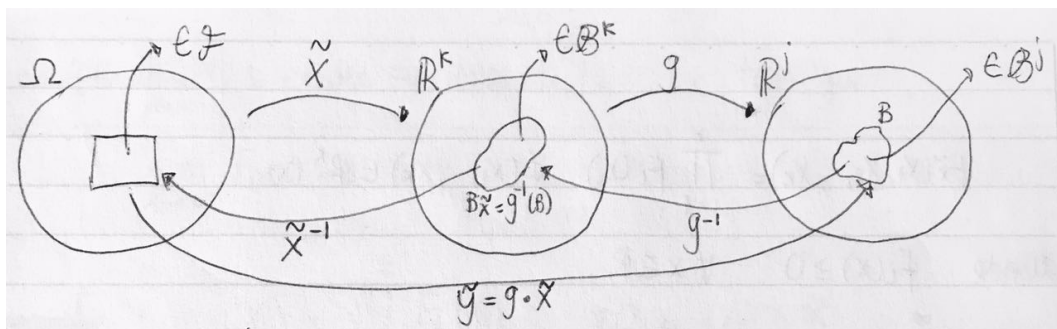 Ω
∈ℱ
X̃
ℝᵏ
∈𝔅ᵏ
g
ℝʲ
∈𝔅ʲ
B
B_X̃ = g⁻¹(B)
X̃⁻¹
g⁻¹
ỹ = g · X̃